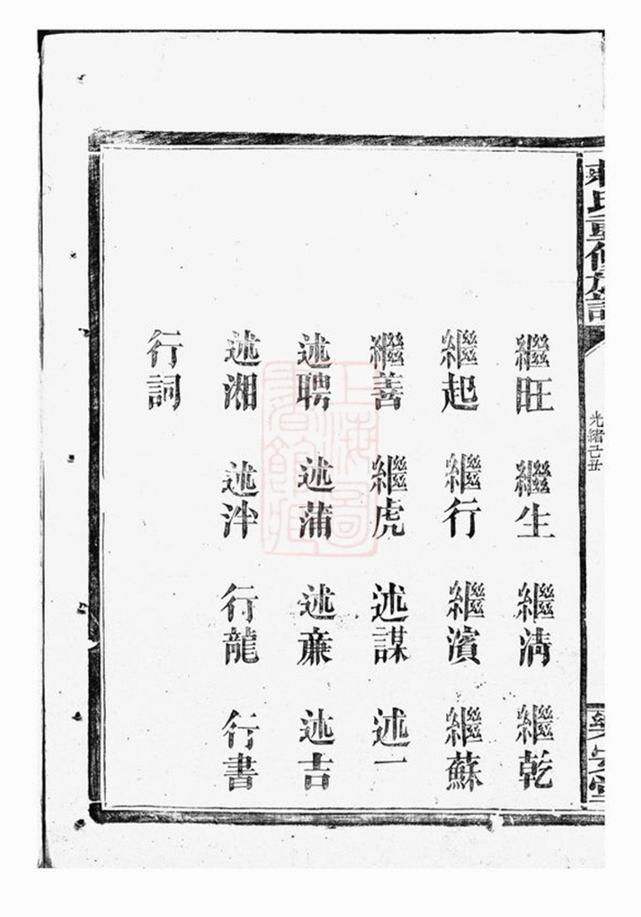 氏重修族譜
光緒己丑
堂
繼旺 繼生 繼清 繼乾
繼起 繼行 繼濱 繼蘇
繼善 繼虎 述謀 述一
述聘 述蒲 述廉 述吉
述湘 述泮 行龍 行書
行詞
上海圖書館藏